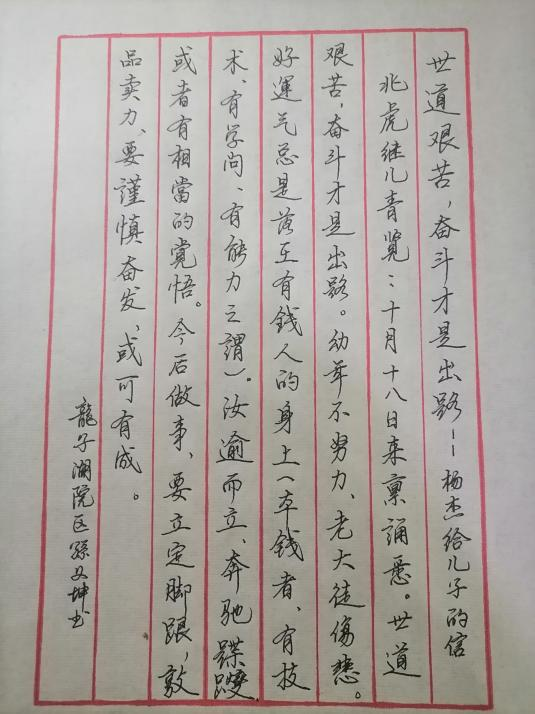 世道艰苦，奋斗才是出路——杨杰给儿子的信
兆虎继儿青览：十月十八日来禀诵悉。世道
艰苦，奋斗才是出路。幼年不努力、老大徒伤悲。
好運气总是落至有錢人的身上（有钱者、有技
术、有学问、有能力之謂）。汝逾而立、奔驰蹀躞
或者有相當的覚悟。今后做事、要立定脚跟，敦
品卖力、要謹慎奋发，或可有成。
龍子湖院区孫又坤书